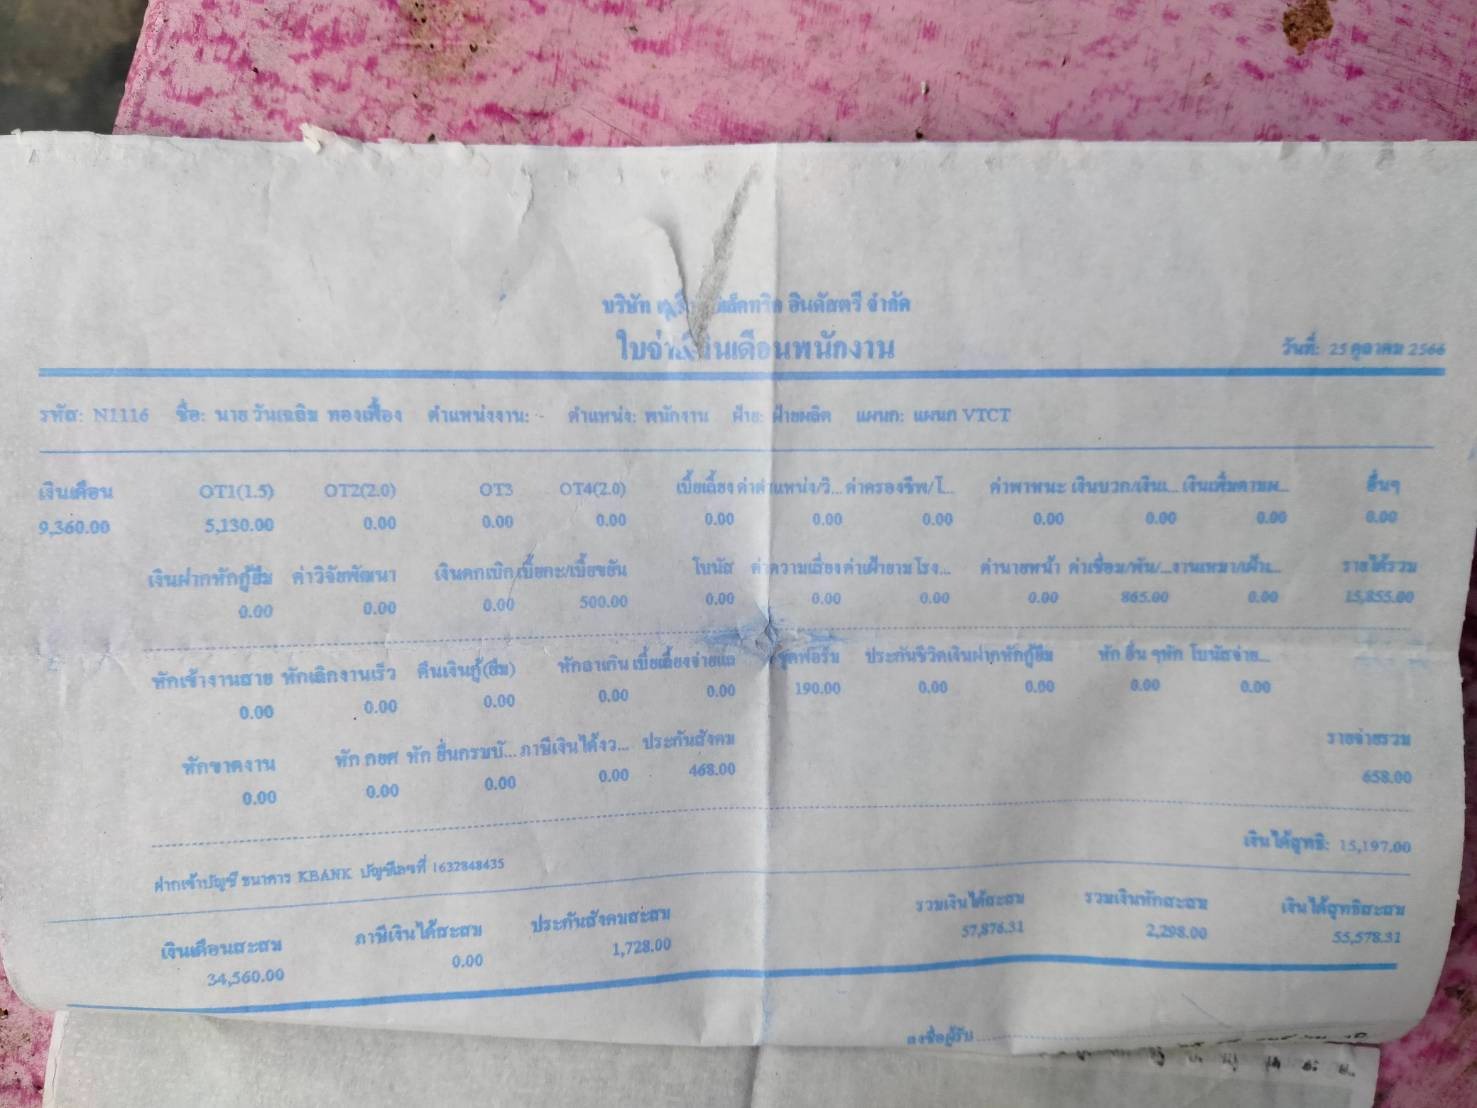 บริษัท อินดัสตรี จำกัด
ใบจ่ายเงินเดือนพนักงาน
วันที่: 25 ตุลาคม 2566
รหัส: N1116 ชื่อ: นาย วันเฉลิม ทองเฟื้อง ตำแหน่งงาน: - ตำแหน่ง: พนักงาน ฝ่าย: ฝ่ายผลิต แผนก: แผนก VTCT
เงินเดือน OT1(1.5) OT2(2.0) OT3 OT4(2.0) เบี้ยเลี้ยง ค่าตำแหน่ง/วิ... ค่าครองชีพ/โ... ค่าพาหนะ เงินบวก/เงินเ... เงินเพิ่มตามผ... อื่นๆ
9,360.00 5,130.00 0.00 0.00 0.00 0.00 0.00 0.00 0.00 0.00 0.00 0.00
เงินฝากหักกู้ยืม ค่าวิจัยพัฒนา เงินตกเบิก เบี้ยกะ/เบี้ยขยัน โบนัส ค่าความเสี่ยง ค่าเฝ้ายามโรง... ค่านายหน้า ค่าเชื่อม/พัน/... งานเหมา/เฝ้น... รายได้รวม
0.00 0.00 0.00 500.00 0.00 0.00 0.00 0.00 865.00 0.00 15,855.00
หักเข้างานสาย หักเลิกงานเร็ว คืนเงินกู้(ยืม) หักลาเกิน เบี้ยเลี้ยงจ่ายแล้ ชุดฟอร์ม ประกันชีวิต เงินฝากหักกู้ยืม หัก อื่น ๆ หัก โบนัสจ่าย...
0.00 0.00 0.00 0.00 0.00 190.00 0.00 0.00 0.00 0.00
หักขาดงาน หัก กยศ หัก ยื่นกรมบั... ภาษีเงินได้งว... ประกันสังคม รายจ่ายรวม
0.00 0.00 0.00 0.00 468.00 658.00
เงินได้สุทธิ: 15,197.00
ฝากเข้าบัญชี ธนาคาร KBANK บัญชีเลขที่ 1632848435
เงินเดือนสะสม ภาษีเงินได้สะสม ประกันสังคมสะสม รวมเงินได้สะสม รวมเงินหักสะสม เงินได้สุทธิสะสม
34,560.00 0.00 1,728.00 57,876.31 2,298.00 55,578.31
ลงชื่อผู้รับ